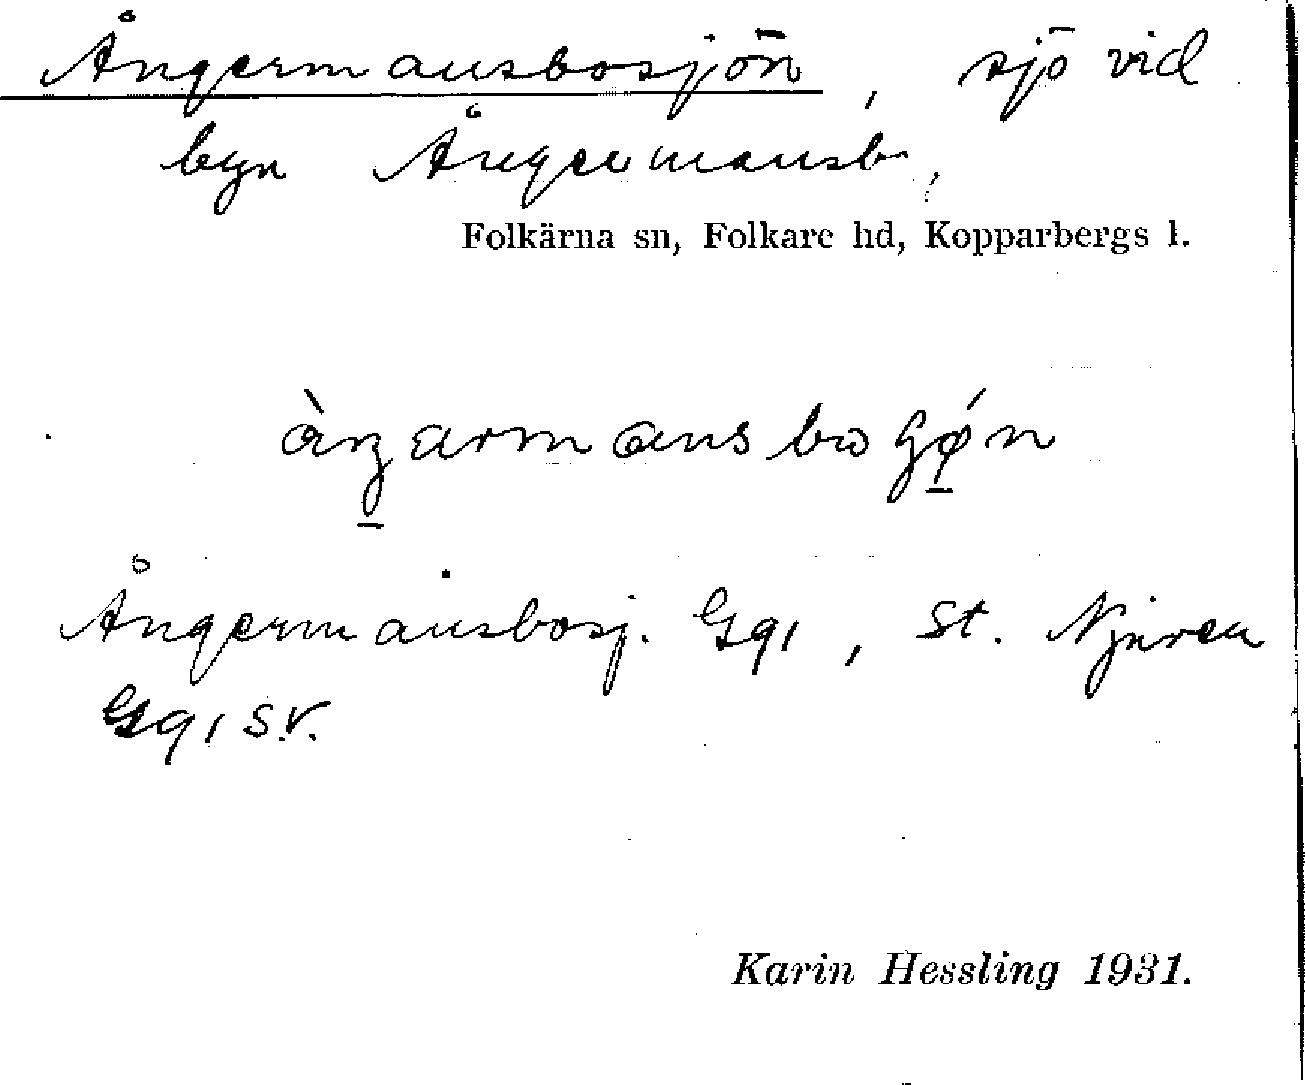 Ångermansbosjön, sjö vid
byn Ångermansb.
Folkärna sn, Folkare hd, Kopparbergs l.
Ångermansbosj. Gg1, St. Njuren
Gg1 SV.
Karin Hessling 1931.